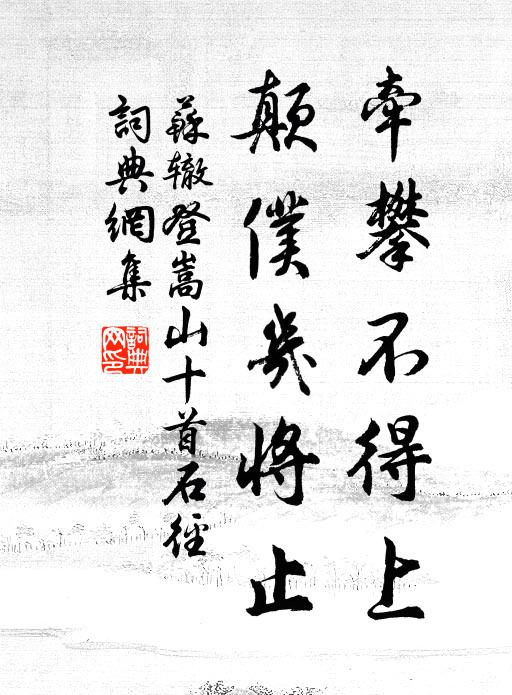 牽攀不得上
顛僕幾將止
蘇辙登嵩山十首石徑
詞典網集
詞典网印